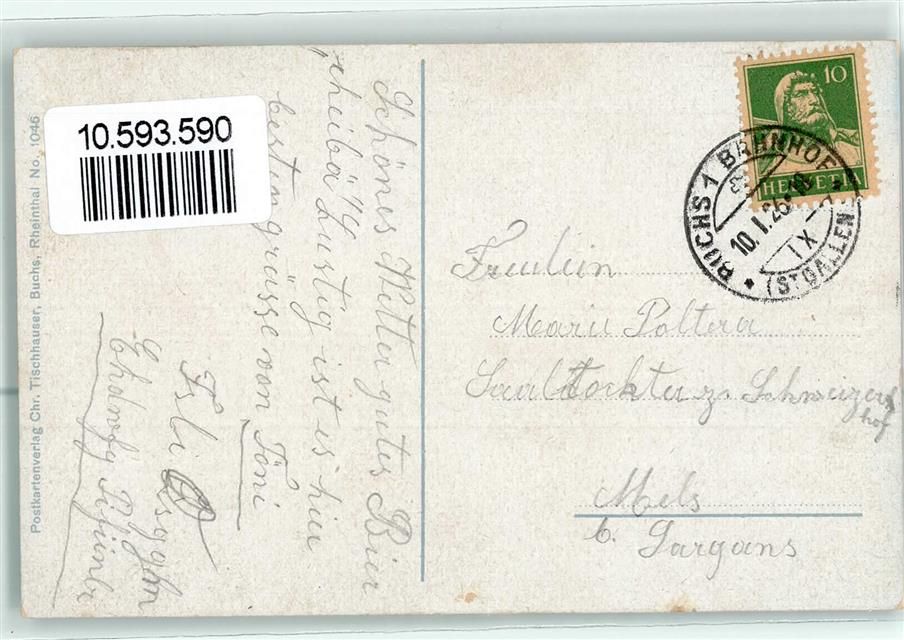 Postkartenverlag Chr. Tischhauser, Buchs, Rheinthal No. 1046
10.593.590
Schönes Wetter gutes Bier
cheibä Lustig ist es hier
besten grüsse von Töni
10
HELVETIA
BUCHS 1 BAHNHOF
10.I.26
IX
(ST GALLEN)
Fräulein
Marie Poltera
Saaltochter z. Schweizer
hof
Mels
b. Sargans